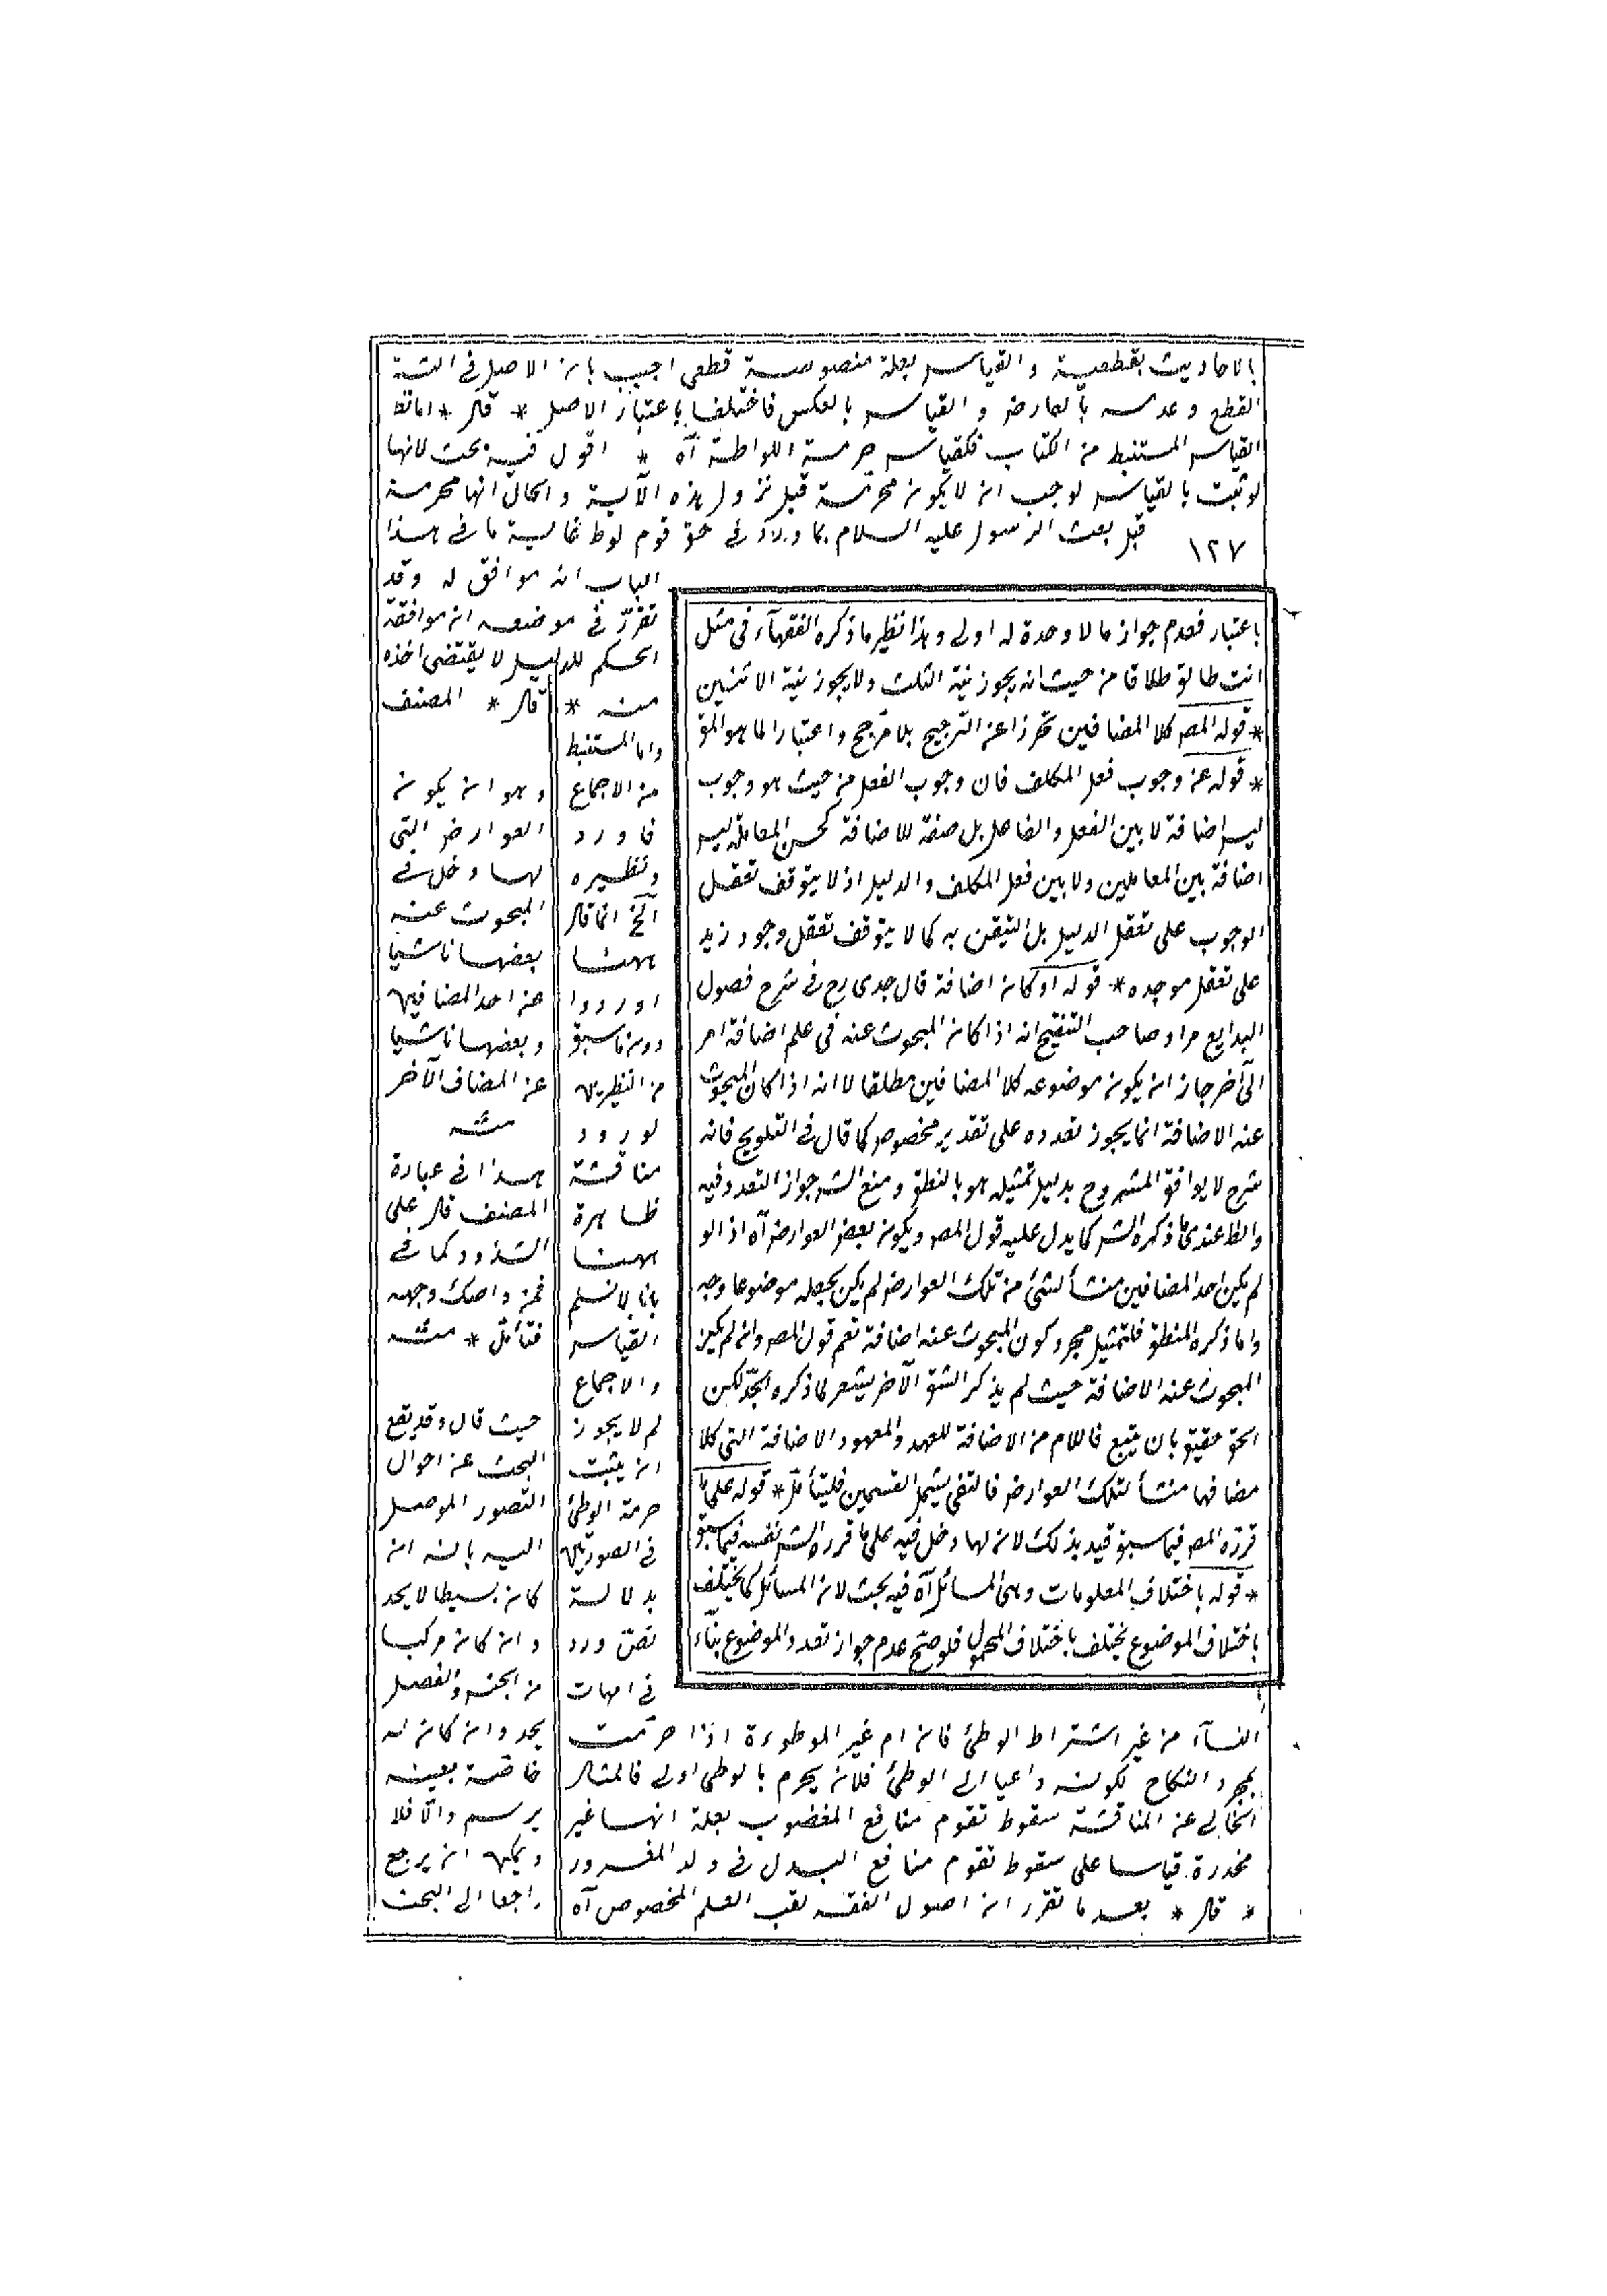 بالاحاديث بقطعية والقياس بعلة منصوصة قطعى اجيب بان الاصل فى السنة
القطع وعدمه بالعارض والقياس بالعكس فاختلفا باعتبار الاصل * قال * اما نظ
القياس المستنبط من الكتاب فكقياس حرمة اللواطة آه * اقول فيه بحث لانها
لو ثبت بالقياس لوجب ان لا يكون محرمة قبل نزول هذه الآية والحال انها محرمة
قبل بعث الرسول عليه السلام بما ورد فى حق قوم لوط غاية ما فى هذا
١٢٧
الباب انه موافق له وقد
تقرّر فى موضعه ان موافقة
الحكم للدليل لا يقتضى اخذه
منه * قال * المصنف
واما المستنبط
من الاجماع
فاورد
ونظيره
آلخ انما قال
ههنا
اوردوا
دون ما سبق
من النظيرين
لورود
مناقشة
ظاهرة
ههنا
بانا لا نسلم
القياس
والاجماع
لم لا يجوز
ان يثبت
حرمة الوطئ
فى الصورتين
بدلالة
نصّ ورد
فى امهات
النسآء من غير اشتراط الوطئ فان ام غير الموطوءة اذا حرّمت
بمجرد النكاح لكونه داعيا الى الوطئ فلان يحرم بالوطى اولى فالمثال
الخالى عن المناقشة سقوط تقوم منافع المغضوب بعلة انها غير
محذرة قياسا على سقوط تقوم منافع البدل فى ولد المغرور
* قال * بعد ما تقرر ان اصول الفقه لقب العلم المخصوص آه
باعتبار فعدم جواز ما لا وحدة له اولى وهذا نظير ما ذكره الفقهآء فى مثل
انت طالق طلاقا من حيث انه يجوز نية الثلث ولا يجوز نية الاثنين
* قوله المص كلا المضافين تحرزا عن الترجيح بلا مرجح واعتبارا لما هو المق
* قوله عن وجوب فعل المكلف فان وجوب الفعل من حيث هو وجوب
ليس اضافة لا بين الفعل والفاعل بل صفة للاضافة كحسن المعاملة ليس
اضافة بين المعاملين ولا بين فعل المكلف والدليل اذ لا يتوقف تعقل
الوجوب على تعقل الدليل بل التيقن به كما لا يتوقف تعقل وجود زيد
على تعقل موجده * قوله او كان اضافة قال جدى رح فى شرح فصول
البدايع مراد صاحب التنقيح انه اذا كان المبحوث عنه فى علم اضافة امر
الى آخر جاز ان يكون موضوعه كلا المضافين مطلقا لا انه اذا كان المبحوث
عنه الاضافة انما يجوز تعدده على تقدير مخصوص كما قال فى التلويح فانه
شرح لا يوافق المشروح بدليل تمثيله هو بالنطق ومنع الش جواز التعدد فيه
والظ عندى ما ذكره الش كما يدل عليه قول المص ويكون بعض العوارض آه اذ لو
لم يكن احد المضافين منشأ لشئ من تلك العوارض لم يكن لجعله موضوعا وجه
واما ذكره المنطق فلتمثيل مجرد كون المبحوث عنه اضافة نعم قول المص وان لم يكن
المبحوث عنه الاضافة حيث لم يذكر الشق الآخر يشعر لما ذكره الجدّ لكن
الحق حقيق بان يتبع فاللام من الاضافة للعهد والمعهود الاضافة التى كلا
مضافها منشأ لتلك العوارض فالنفى يشمل القسمين فليتأمل * قوله على ما
قرّره المص فيما سبق قيد بذلك لان لها دخل فيه على ما قرره الش نفسه فيما سبق
* قوله باختلاف المعلومات وهى المسائل آه فيه بحث لان المسائل كما يختلف
باختلاف الموضوع يختلف باختلاف المحمول فلو صحّ عدم جواز تعدد الموضوع بنآء
وهو ان يكون
العوارض التى
لها دخل فى
المبحوث عنه
بعضها ناشيا
عن احد المضافين
وبعضها ناشيا
عن المضاف الآخر
منه
هذا فى عبارة
المصنف قال على
الشذوذ كما فى
وجهه
فتأمل * منه
حيث قال وقد يقع
البحث عن احوال
التصور الموصل
اليه بانه ان
كان بسيطا لا يحد
وان كان مركبا
من الجنس والفصل
يحد وان كان له
خاصّة بعينه
يرسم والّا فلا
ويمكن ان يرجع
راجعا الى البحث